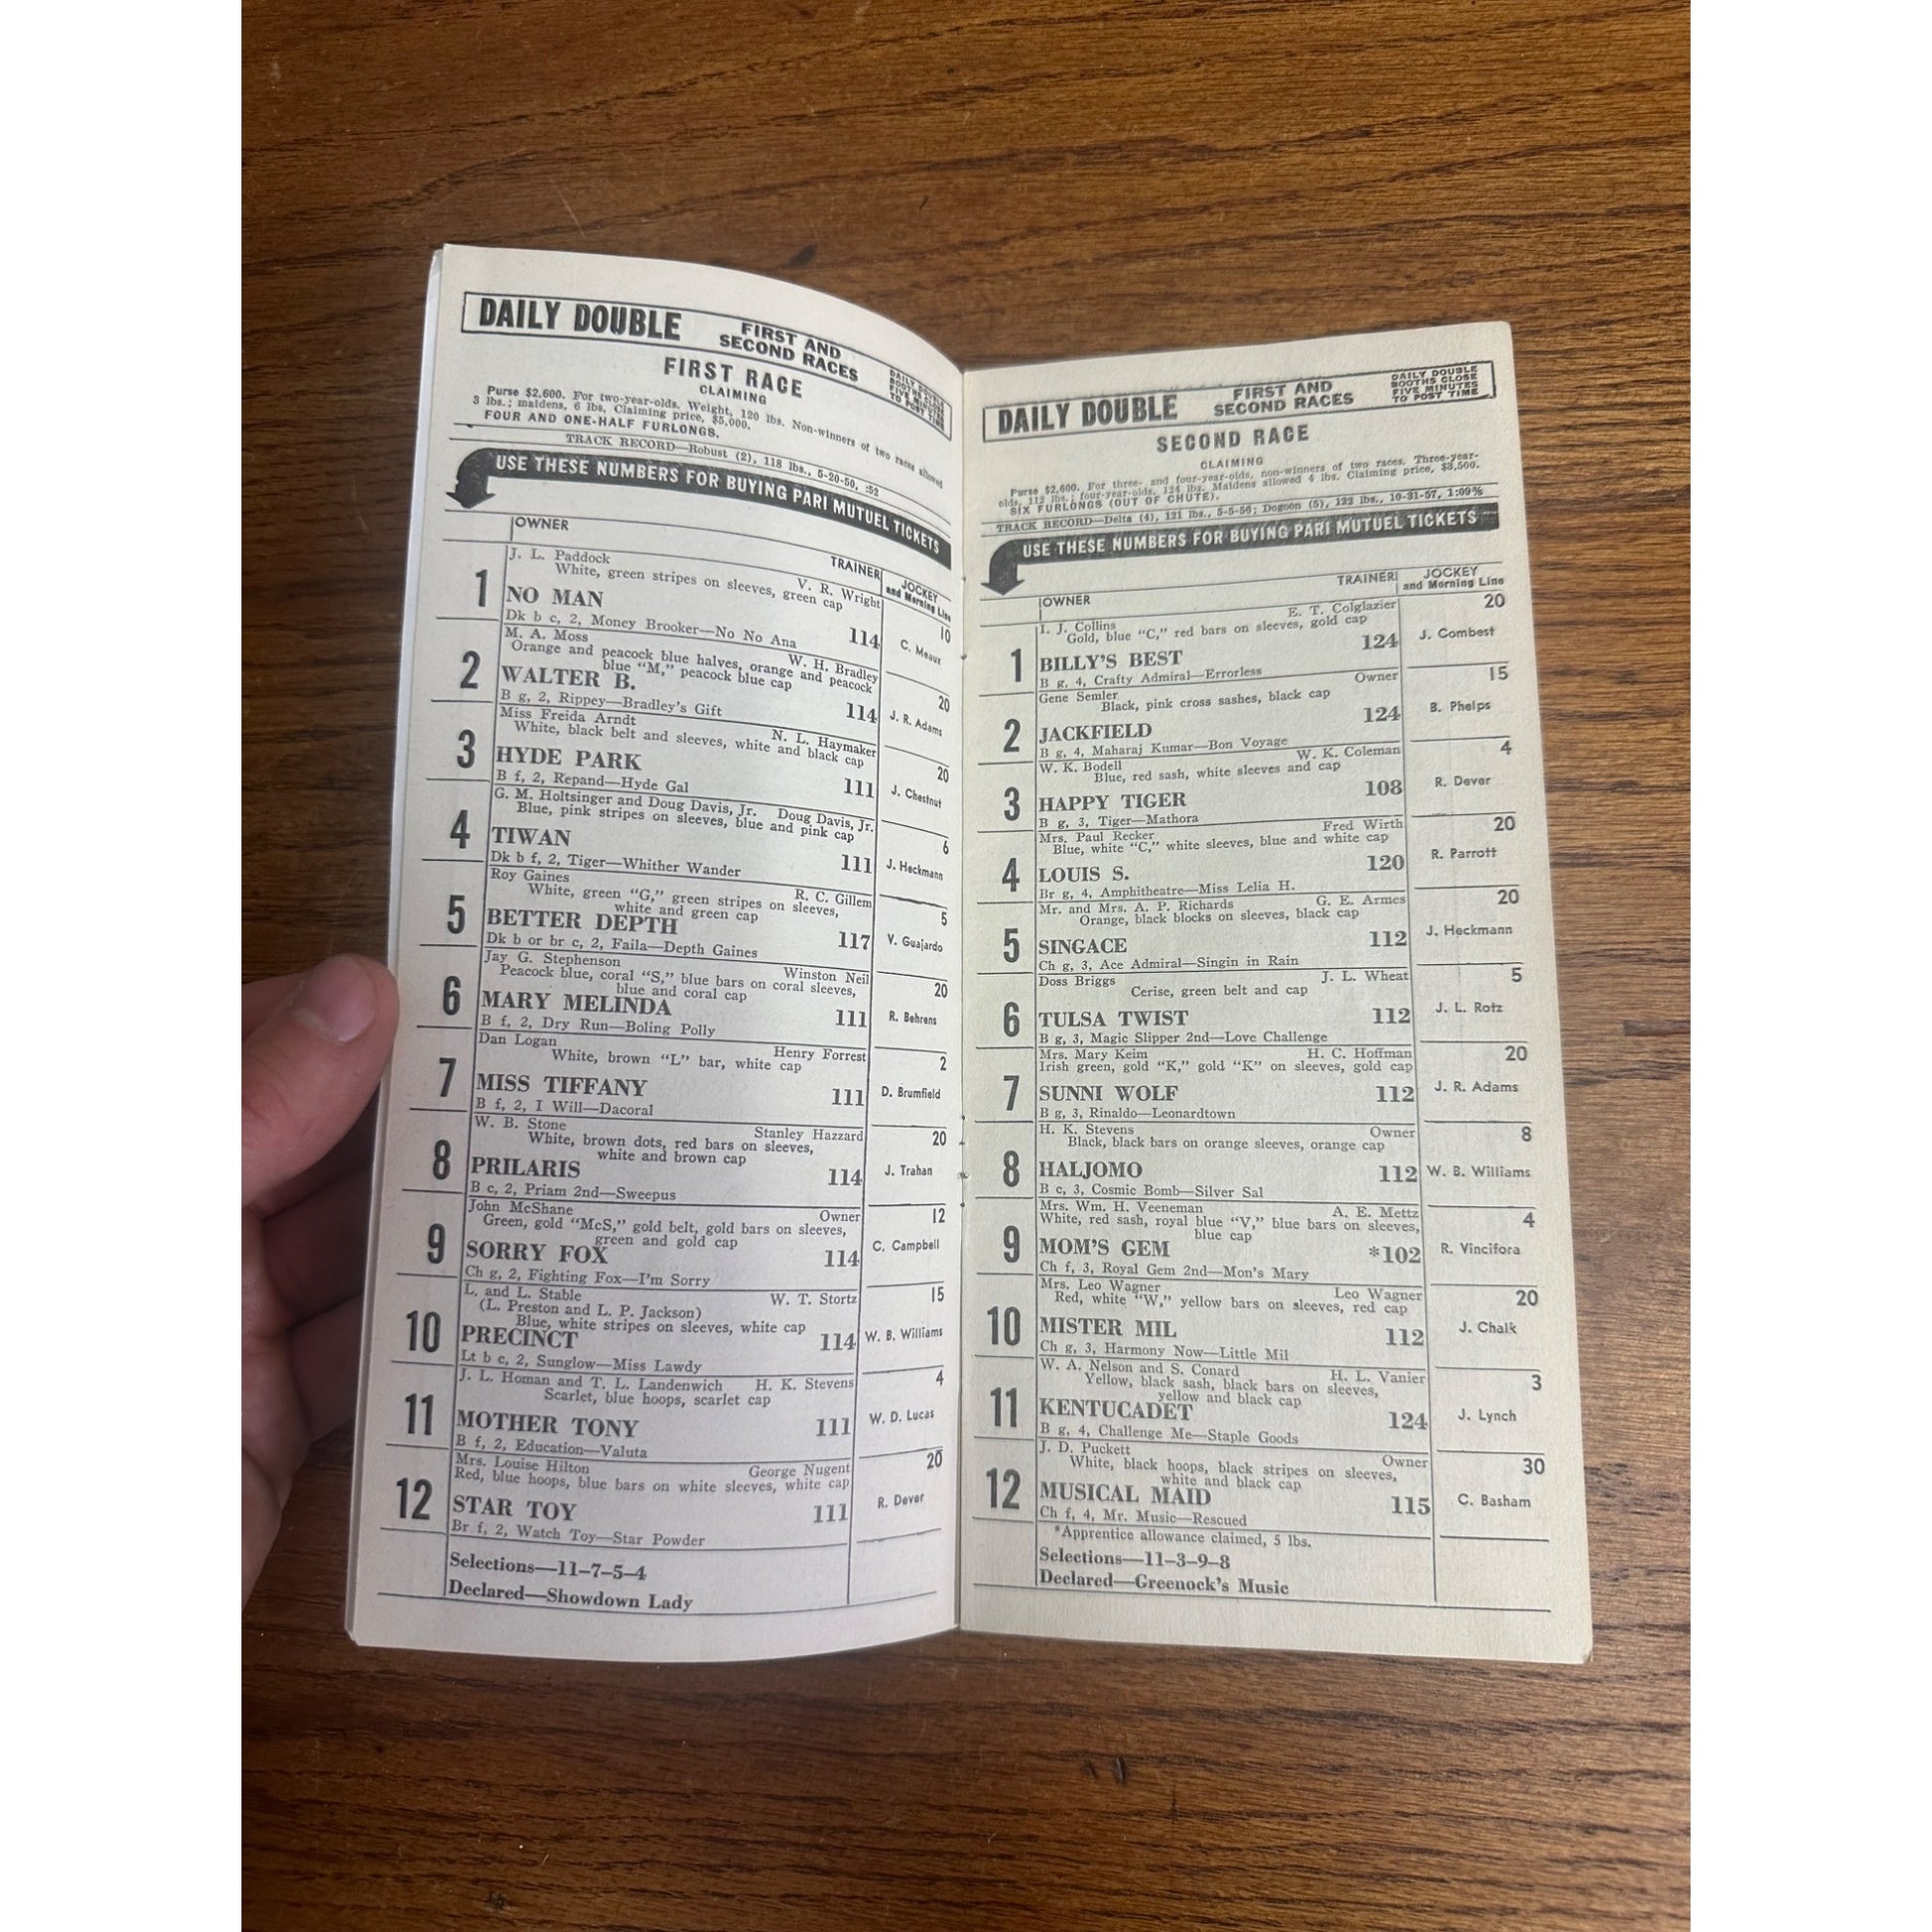 DAILY DOUBLE
FIRST AND
SECOND RACES
DAILY DOUBLE
BOOTHS CLOSE
FIVE MINUTES
TO POST TIME
FIRST RACE
CLAIMING
Purse $2,600. For two-year-olds. Weight, 120 lbs. Non-winners of two races allowed
3 lbs.; maidens, 6 lbs. Claiming price, $5,000.
FOUR AND ONE-HALF FURLONGS.
TRACK RECORD—Robust (2), 118 lbs., 5-20-50, :52
USE THESE NUMBERS FOR BUYING PARI MUTUEL TICKETS
OWNER TRAINER JOCKEY
and Morning Line
J. L. Paddock V. R. Wright 10
White, green stripes on sleeves, green cap
1 NO MAN 114 C. Meaux
Dk b c, 2, Money Brooker—No No Ana
M. A. Moss W. H. Bradley 20
Orange and peacock blue halves, orange and peacock
blue "M," peacock blue cap
2 WALTER B. 114 J. R. Adams
B g, 2, Rippey—Bradley's Gift
Miss Freida Arndt N. L. Haymaker 20
White, black belt and sleeves, white and black cap
3 HYDE PARK 111 J. Chestnut
B f, 2, Repand—Hyde Gal
G. M. Holtsinger and Doug Davis, Jr. Doug Davis, Jr. 6
Blue, pink stripes on sleeves, blue and pink cap
4 TIWAN 111 J. Heckmann
Dk b f, 2, Tiger—Whither Wander
Roy Gaines R. C. Gillem 5
White, green "G," green stripes on sleeves,
white and green cap
5 BETTER DEPTH 117 V. Guajardo
Dk b or br c, 2, Faila—Depth Gaines
Jay G. Stephenson Winston Neil 20
Peacock blue, coral "S," blue bars on coral sleeves,
blue and coral cap
6 MARY MELINDA 111 R. Behrens
B f, 2, Dry Run—Boling Polly
Dan Logan Henry Forrest 2
White, brown "L" bar, white cap
7 MISS TIFFANY 111 D. Brumfield
B f, 2, I Will—Dacoral
W. B. Stone Stanley Hazzard 20
White, brown dots, red bars on sleeves,
white and brown cap
8 PRILARIS 114 J. Trahan
B c, 2, Priam 2nd—Sweepus
John McShane Owner 12
Green, gold "McS," gold belt, gold bars on sleeves,
green and gold cap
9 SORRY FOX 114 C. Campbell
Ch g, 2, Fighting Fox—I'm Sorry
L. and L. Stable W. T. Stortz 15
(L. Preston and L. P. Jackson)
Blue, white stripes on sleeves, white cap
10 PRECINCT 114 W. B. Williams
Lt b c, 2, Sunglow—Miss Lawdy
J. L. Homan and T. L. Landenwich H. K. Stevens 4
Scarlet, blue hoops, scarlet cap
11 MOTHER TONY 111 W. D. Lucas
B f, 2, Education—Valuta
Mrs. Louise Hilton George Nugent 20
Red, blue hoops, blue bars on white sleeves, white cap
12 STAR TOY 111 R. Dever
Br f, 2, Watch Toy—Star Powder
Selections—11-7-5-4
Declared—Showdown Lady
DAILY DOUBLE
FIRST AND
SECOND RACES
DAILY DOUBLE
BOOTHS CLOSE
FIVE MINUTES
TO POST TIME
SECOND RACE
CLAIMING
Purse $2,600. For three- and four-year-olds, non-winners of two races. Three-year-
olds, 112 lbs.; four-year-olds, 124 lbs. Maidens allowed 4 lbs. Claiming price, $3,500.
SIX FURLONGS (OUT OF CHUTE).
TRACK RECORD—Delta (4), 121 lbs., 5-5-56; Dogoon (5), 122 lbs., 10-31-57, 1:09⅘
USE THESE NUMBERS FOR BUYING PARI MUTUEL TICKETS
OWNER TRAINER JOCKEY
and Morning Line
I. J. Collins E. T. Colglazier 20
Gold, blue "C," red bars on sleeves, gold cap
1 BILLY'S BEST 124 J. Combest
B g, 4, Crafty Admiral—Errorless
Gene Semler Owner 15
Black, pink cross sashes, black cap
2 JACKFIELD 124 B. Phelps
B g, 4, Maharaj Kumar—Bon Voyage
W. K. Bodell W. K. Coleman 4
Blue, red sash, white sleeves and cap
3 HAPPY TIGER 108 R. Dever
B g, 3, Tiger—Mathora
Mrs. Paul Recker Fred Wirth 20
Blue, white "C," white sleeves, blue and white cap
4 LOUIS S. 120 R. Parrott
Br g, 4, Amphitheatre—Miss Lelia H.
Mr. and Mrs. A. P. Richards G. E. Armes 20
Orange, black blocks on sleeves, black cap
5 SINGACE 112 J. Heckmann
Ch g, 3, Ace Admiral—Singin in Rain
Doss Briggs J. L. Wheat 5
Cerise, green belt and cap
6 TULSA TWIST 112 J. L. Rotz
B g, 3, Magic Slipper 2nd—Love Challenge
Mrs. Mary Keim H. C. Hoffman 20
Irish green, gold "K," gold "K" on sleeves, gold cap
7 SUNNI WOLF 112 J. R. Adams
B g, 3, Rinaldo—Leonardtown
H. K. Stevens Owner 8
Black, black bars on orange sleeves, orange cap
8 HALJOMO 112 W. B. Williams
B c, 3, Cosmic Bomb—Silver Sal
Mrs. Wm. H. Veeneman A. E. Mettz 4
White, red sash, royal blue "V," blue bars on sleeves,
blue cap
9 MOM'S GEM *102 R. Vincifora
Ch f, 3, Royal Gem 2nd—Mon's Mary
Mrs. Leo Wagner Leo Wagner 20
Red, white "W," yellow bars on sleeves, red cap
10 MISTER MIL 112 J. Chalk
Ch g, 3, Harmony Now—Little Mil
W. A. Nelson and S. Conard H. L. Vanier 3
Yellow, black sash, black bars on sleeves,
yellow and black cap
11 KENTUCADET 124 J. Lynch
B g, 4, Challenge Me—Staple Goods
J. D. Puckett Owner 30
White, black hoops, black stripes on sleeves,
white and black cap
12 MUSICAL MAID 115 C. Basham
Ch f, 4, Mr. Music—Rescued
*Apprentice allowance claimed, 5 lbs.
Selections—11-3-9-8
Declared—Greenock's Music